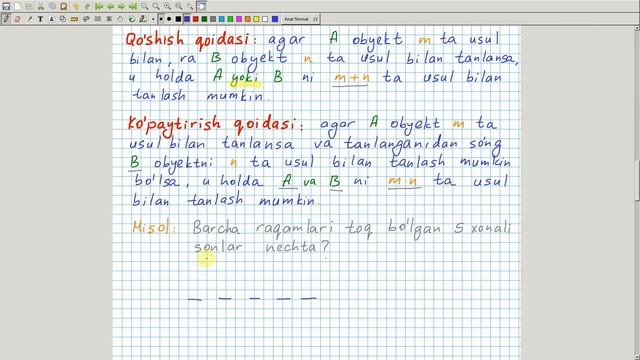 Arial Normal 12
Qo'shish qoidasi: agar A obyekt m ta usul
bilan, ra B obyekt n ta usul bilan tanlansa,
u holda A yoki B ni m+n ta usul bilan
tanlash mumkin.
Ko'paytirish qoidasi: agar A obyekt m ta
usul bilan tanlansa va tanlanganidan so'ng
B obyektni n ta usul bilan tanlash mumkin
bo'lsa, u holda A va B ni m·n ta usul
bilan tanlash mumkin.
Misol: Barcha raqamlari toq bo'lgan 5 xonali
sonlar nechta?